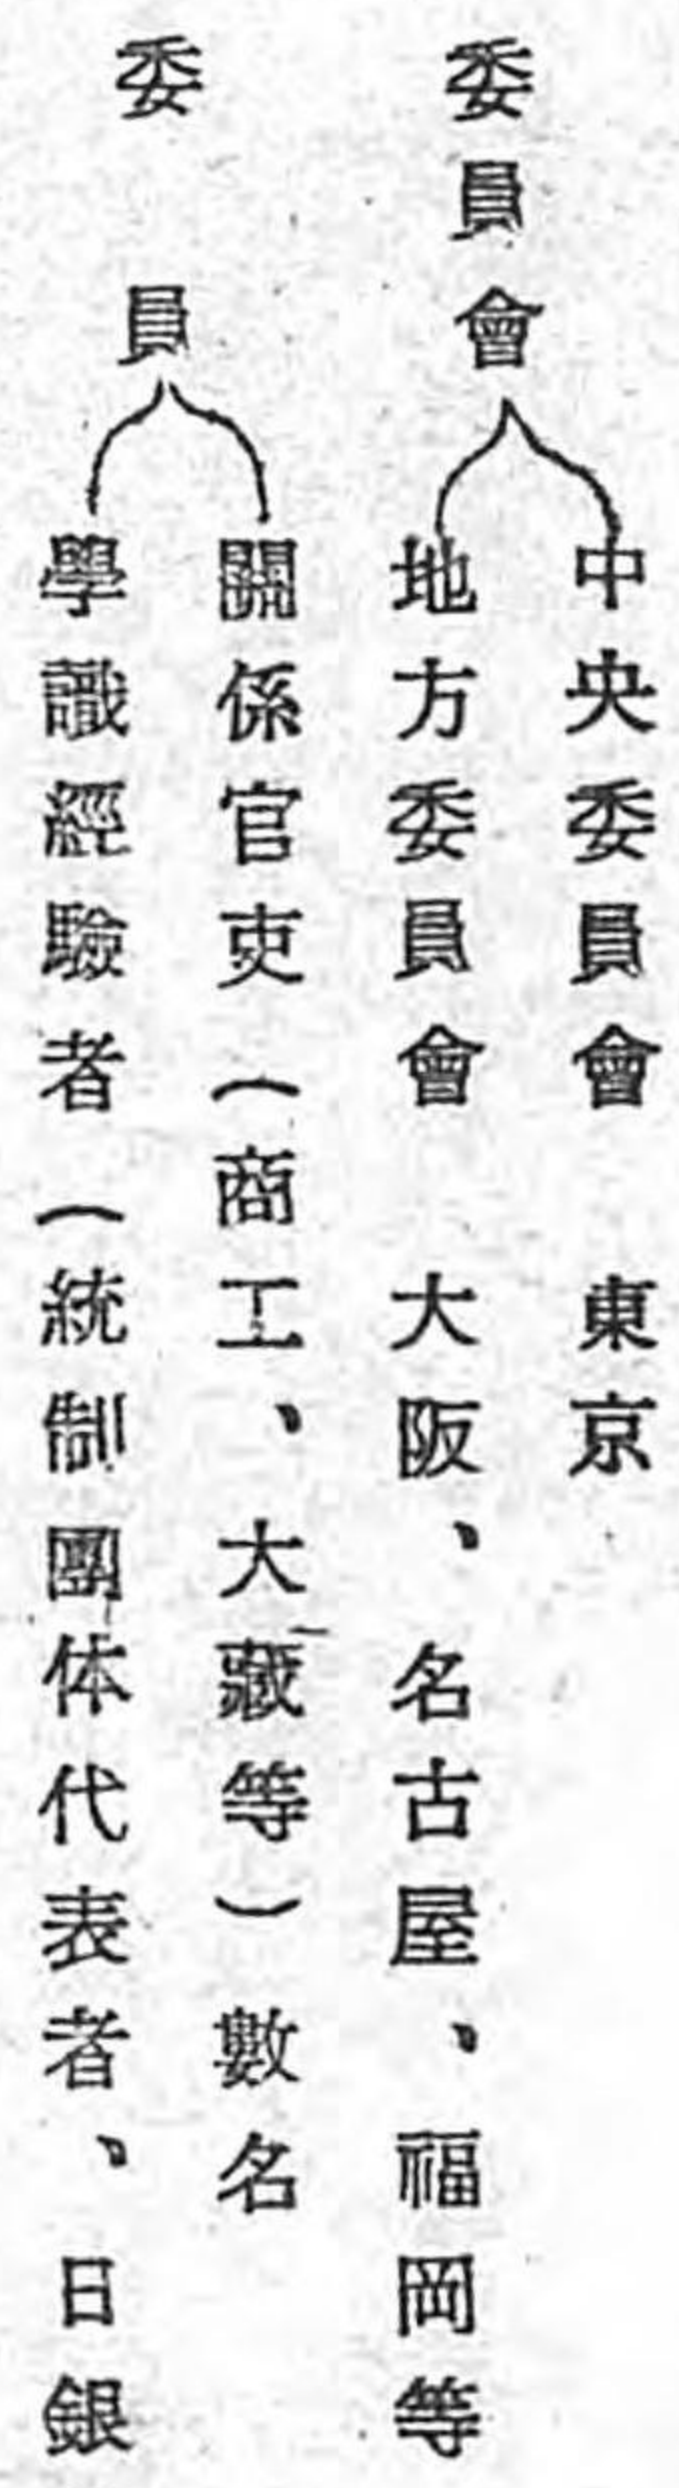 委員會
中央委員會 東京
地方委員會 大阪、名古屋、福岡等
委員
關係官吏(商工、大藏等)數名
學識經驗者(統制團体代表者、日銀